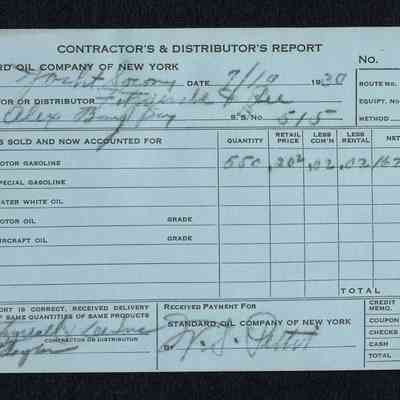 CONTRACTOR'S & DISTRIBUTOR'S REPORT
ARD OIL COMPANY OF NEW YORK
NO.
DATE 7/19 1930
ROUTE NO.
TOR OR DISTRIBUTOR & Lee
EQUIPT. NO
Alex Bay S.S. NO 515
METHOD
S SOLD AND NOW ACCOUNTED FOR QUANTITY RETAIL PRICE LESS COM'N LESS RENTAL NET
OTOR GASOLINE 550 .202 .02 .02
PECIAL GASOLINE
ATER WHITE OIL
OTOR OIL GRADE
IRCRAFT OIL GRADE
TOTAL
ORT IS CORRECT, RECEIVED DELIVERY
OF SAME QUANTITIES OF SAME PRODUCTS
CONTRACTOR OR DISTRIBUTOR
RECEIVED PAYMENT FOR
STANDARD OIL COMPANY OF NEW YORK
BY
CREDIT MEMO.
COUPONS
CHECKS
CASH
TOTAL